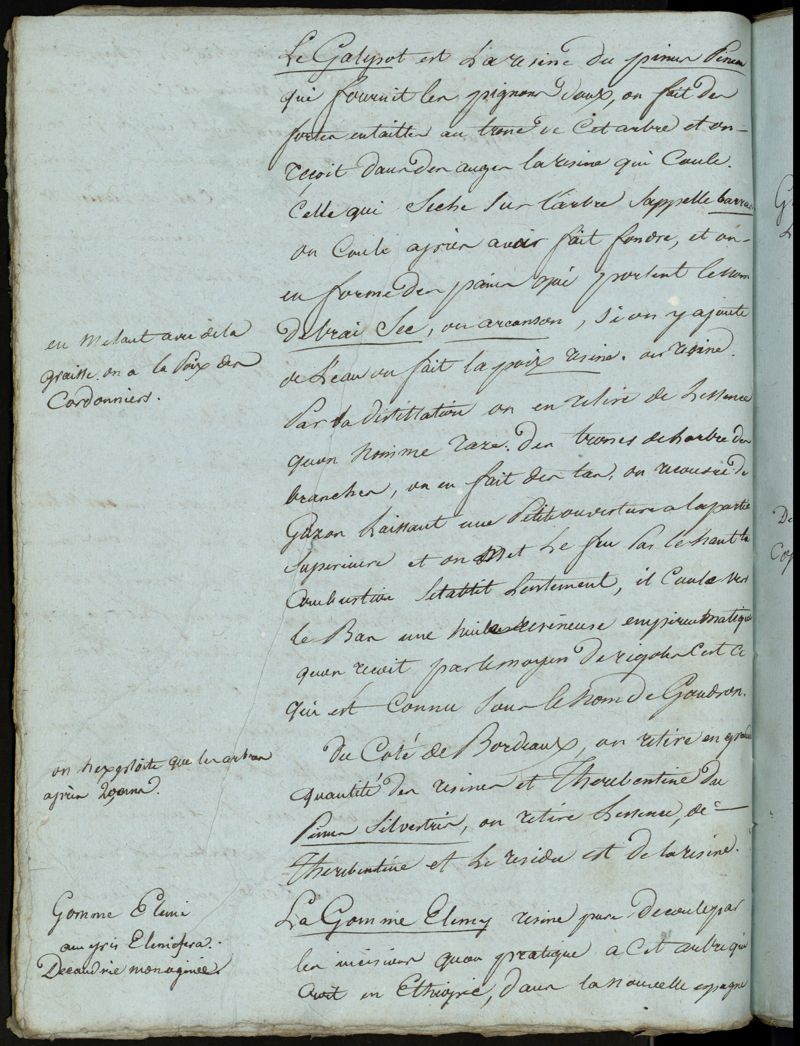 Le Galipot est La resine du pinus Pinea
qui fournit les pignons doux, on fait des
fortes entailles au tronc de Cet arbre et on
reçoit dans des auges la resine qui Coule.
Celle qui Seche Sur l'arbre Sappelle barras
on Coule après avoir fait fondre, et on
en forme des pains qui portent le nom
de brai Sec, ou arcanson, Si on y ajoute
de l'eau on fait la poix resine. ou resine.
en melant avec de la
graisse on a la Poix des
Cordonniers.
Par la distillation on en retire de Lessence
quon nomme raze. des troncs de larbre des
branches, on en fait des tas, on recouvre de
Gazon Laissant une Petite ouverture a la partie
Superieure et on Met Le feu Par le haut la
Combustion Setablit Lentement, il Coule vers
le Bas une huile resineuse empireumatique
quon reçoit par le moyen de rigoles C'est Ce
qui est Connu Sous le nom de Goudron.
du Coté de Bordeaux, on retire en grande
quantité des resines et Therebentine du
Pinus Silvestris, on retire Lessence, de
Therebentine et Le residu est de la resine.
on n'exploite que les arbres
après 20 ans.
Gomme Elemi
amyris Elemifera.
Decandrie monoginie.
La Gomme Elemy resine pure decoule par
les incisions quon pratique a Cet arbre qui
Croit en Ethiopie, dans la nouvelle espagne